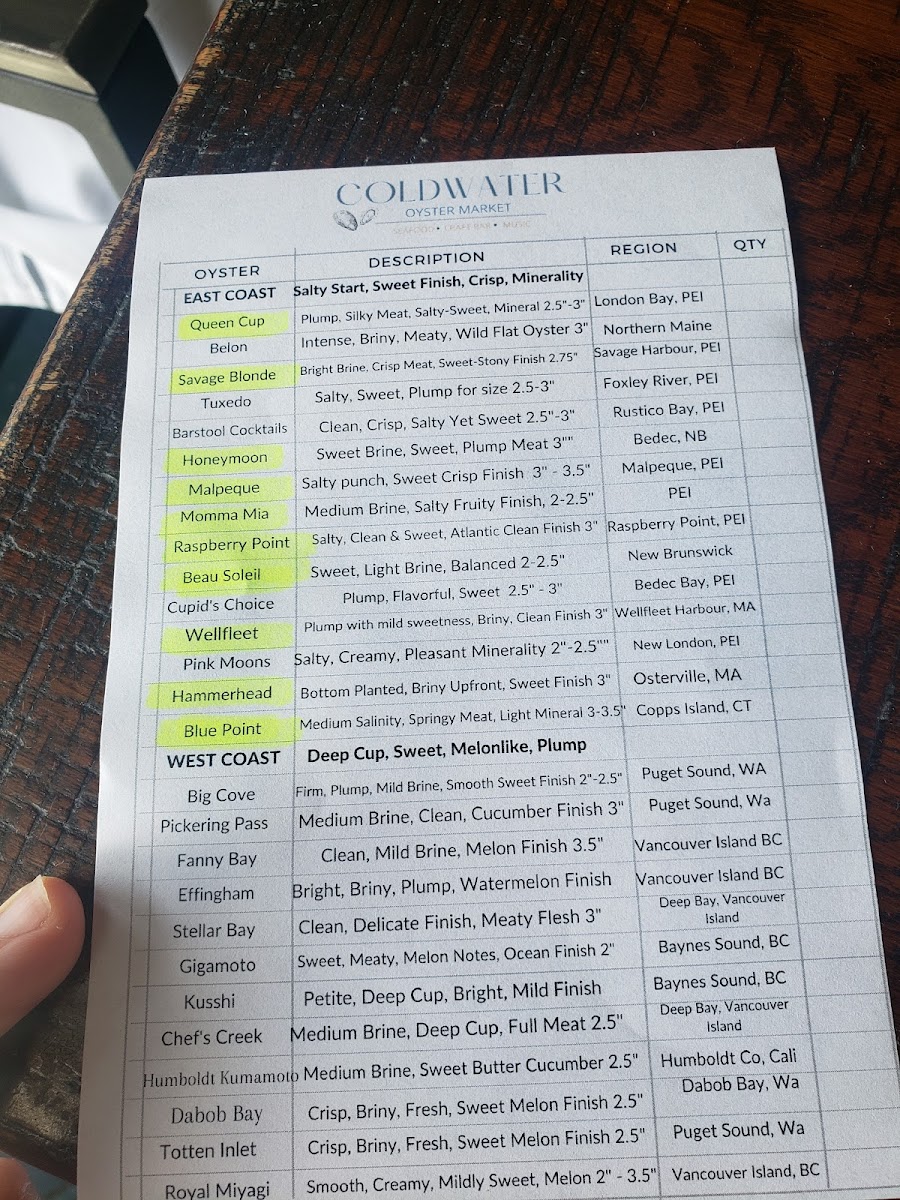 COLDWATER
OYSTER MARKET
SEAFOOD • CRAFT BAR • MUSIC
OYSTER DESCRIPTION REGION QTY
EAST COAST Salty Start, Sweet Finish, Crisp, Minerality
Queen Cup Plump, Silky Meat, Salty-Sweet, Mineral 2.5"-3" London Bay, PEI
Belon Intense, Briny, Meaty, Wild Flat Oyster 3" Northern Maine
Savage Blonde Bright Brine, Crisp Meat, Sweet-Stony Finish 2.75" Savage Harbour, PEI
Tuxedo Salty, Sweet, Plump for size 2.5-3" Foxley River, PEI
Barstool Cocktails Clean, Crisp, Salty Yet Sweet 2.5"-3" Rustico Bay, PEI
Honeymoon Sweet Brine, Sweet, Plump Meat 3"" Bedec, NB
Malpeque Salty punch, Sweet Crisp Finish 3" - 3.5" Malpeque, PEI
Momma Mia Medium Brine, Salty Fruity Finish, 2-2.5" PEI
Raspberry Point Salty, Clean & Sweet, Atlantic Clean Finish 3" Raspberry Point, PEI
Beau Soleil Sweet, Light Brine, Balanced 2-2.5" New Brunswick
Cupid's Choice Plump, Flavorful, Sweet 2.5" - 3" Bedec Bay, PEI
Wellfleet Plump with mild sweetness, Briny, Clean Finish 3" Wellfleet Harbour, MA
Pink Moons Salty, Creamy, Pleasant Minerality 2"-2.5"" New London, PEI
Hammerhead Bottom Planted, Briny Upfront, Sweet Finish 3" Osterville, MA
Blue Point Medium Salinity, Springy Meat, Light Mineral 3-3.5" Copps Island, CT
WEST COAST Deep Cup, Sweet, Melonlike, Plump
Big Cove Firm, Plump, Mild Brine, Smooth Sweet Finish 2"-2.5" Puget Sound, WA
Pickering Pass Medium Brine, Clean, Cucumber Finish 3" Puget Sound, Wa
Fanny Bay Clean, Mild Brine, Melon Finish 3.5" Vancouver Island BC
Effingham Bright, Briny, Plump, Watermelon Finish Vancouver Island BC
Stellar Bay Clean, Delicate Finish, Meaty Flesh 3" Deep Bay, Vancouver
Island
Gigamoto Sweet, Meaty, Melon Notes, Ocean Finish 2" Baynes Sound, BC
Kusshi Petite, Deep Cup, Bright, Mild Finish Baynes Sound, BC
Chef's Creek Medium Brine, Deep Cup, Full Meat 2.5" Deep Bay, Vancouver
Island
Humboldt Kumamoto Medium Brine, Sweet Butter Cucumber 2.5" Humboldt Co, Cali
Dabob Bay Crisp, Briny, Fresh, Sweet Melon Finish 2.5" Dabob Bay, Wa
Totten Inlet Crisp, Briny, Fresh, Sweet Melon Finish 2.5" Puget Sound, Wa
Royal Miyagi Smooth, Creamy, Mildly Sweet, Melon 2" - 3.5" Vancouver Island, BC